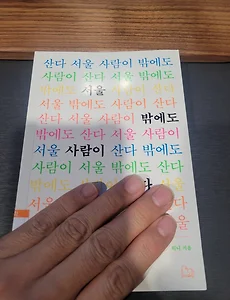 산다 서울 사람이 밖에도
사람이 산다 서울 밖에도
밖에도 서울 사람이 산다
서울 밖에도 사람이 산다
산다 서울 사람이 밖에도
밖에도 산다 서울 사람이
서울 사람이 산다 밖에도
사람이 서울 밖에도 산다
밖에도 산다 서울
서울
서울
지음